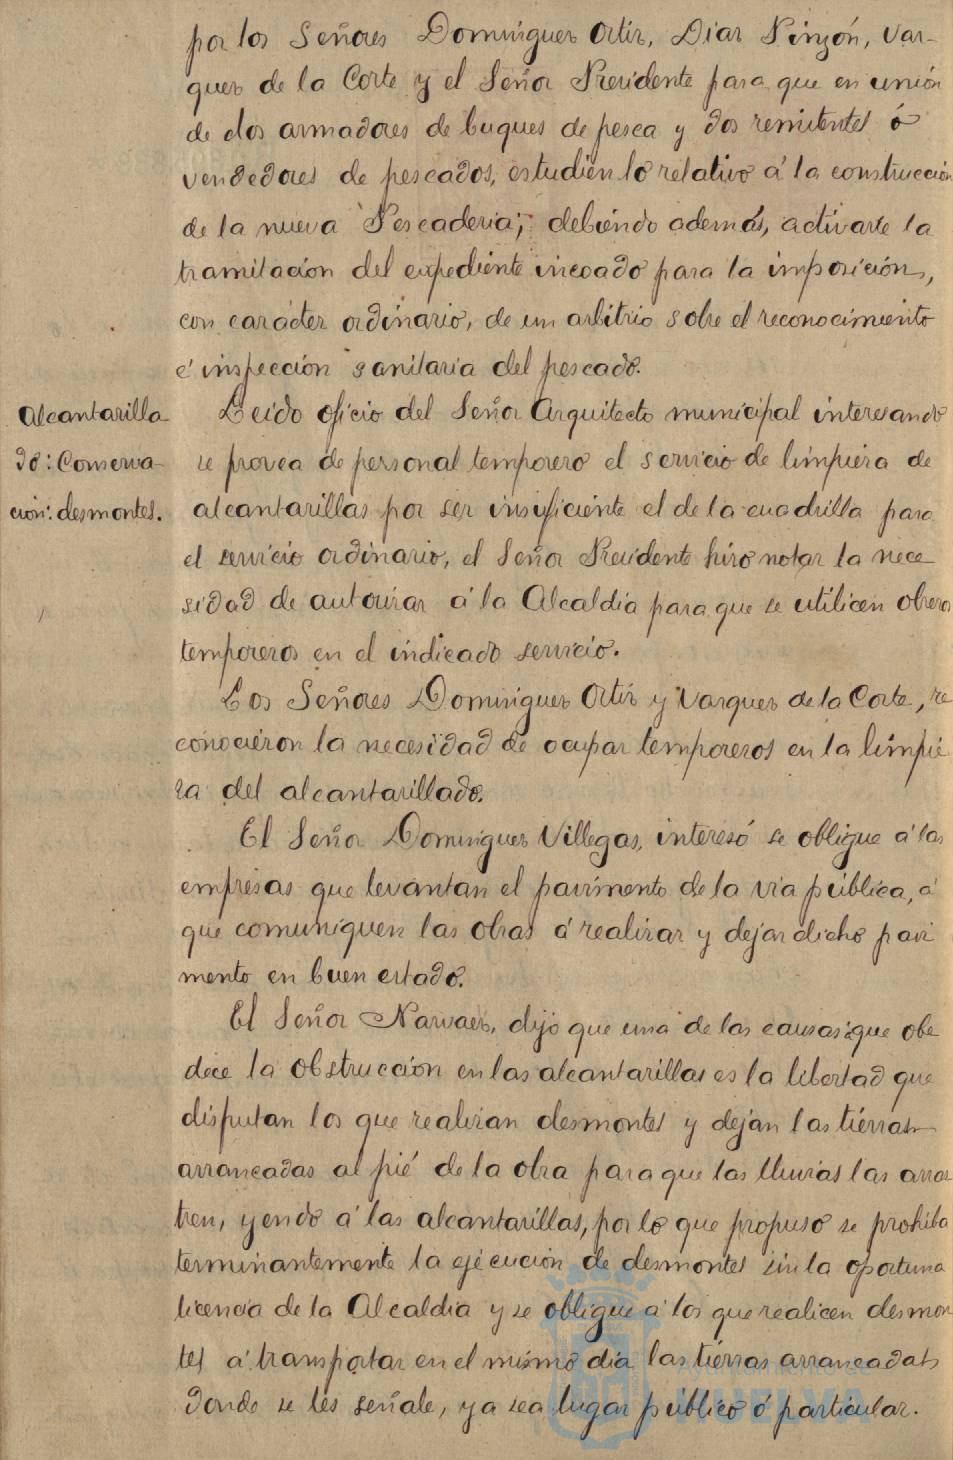 por los Señores Dominguez Ortiz, Diaz Pinzón, Vaz-
quez de la Corte y el Señor Presidente para que en unión
de dos armadores de buques de pesca y dos remitentes ó
vendedores de pescados, estudien lo relativo á la construcción
de la nueva Pescadería; debiendo además, activarse la
tramitación del expediente incoado para la imposición,
con carácter ordinario, de un arbitrio sobre el reconocimiento
é inspección sanitaria del pescado.
Alcantarilla
do: Conserva-
ción: desmontes.
Leido oficio del Señor Arquitecto municipal interesando
se provea de personal temporero el servicio de limpieza de
alcantarillas por ser insuficiente el de la cuadrilla para
el servicio ordinario, el Señor Presidente hizo notar la nece
sidad de autorizar á la Alcaldía para que se utilicen obreros
temporeros en el indicado servicio.
Los Señores Dominguez Ortiz y Vazquez de la Corte, re
conocieron la necesidad de ocupar temporeros en la limpie
za del alcantarillado.
El Señor Dominguez Villegas, interesó se obligue á las
empresas que levantan el pavimento de la vía pública, á
que comuniquen las obras á realizar y dejar dicho pavi
mento en buen estado.
El Señor Narvaez, dijo que una de las causas que obe
dece la obstrucción en las alcantarillas es la libertad que
disfrutan los que realizan desmontes y dejan las tierras
arrancadas al pié de la obra para que las lluvias las arras
tren, yendo á las alcantarillas, por lo que propuso se prohiba
terminantemente la ejecución de desmontes sin la oportuna
licencia de la Alcaldía y se obligue á los que realicen desmon
tes á transportar en el mismo día las tierras arrancadas
donde se les señale, ya sea lugar público ó particular.
Ayuntamiento de
HUELVA